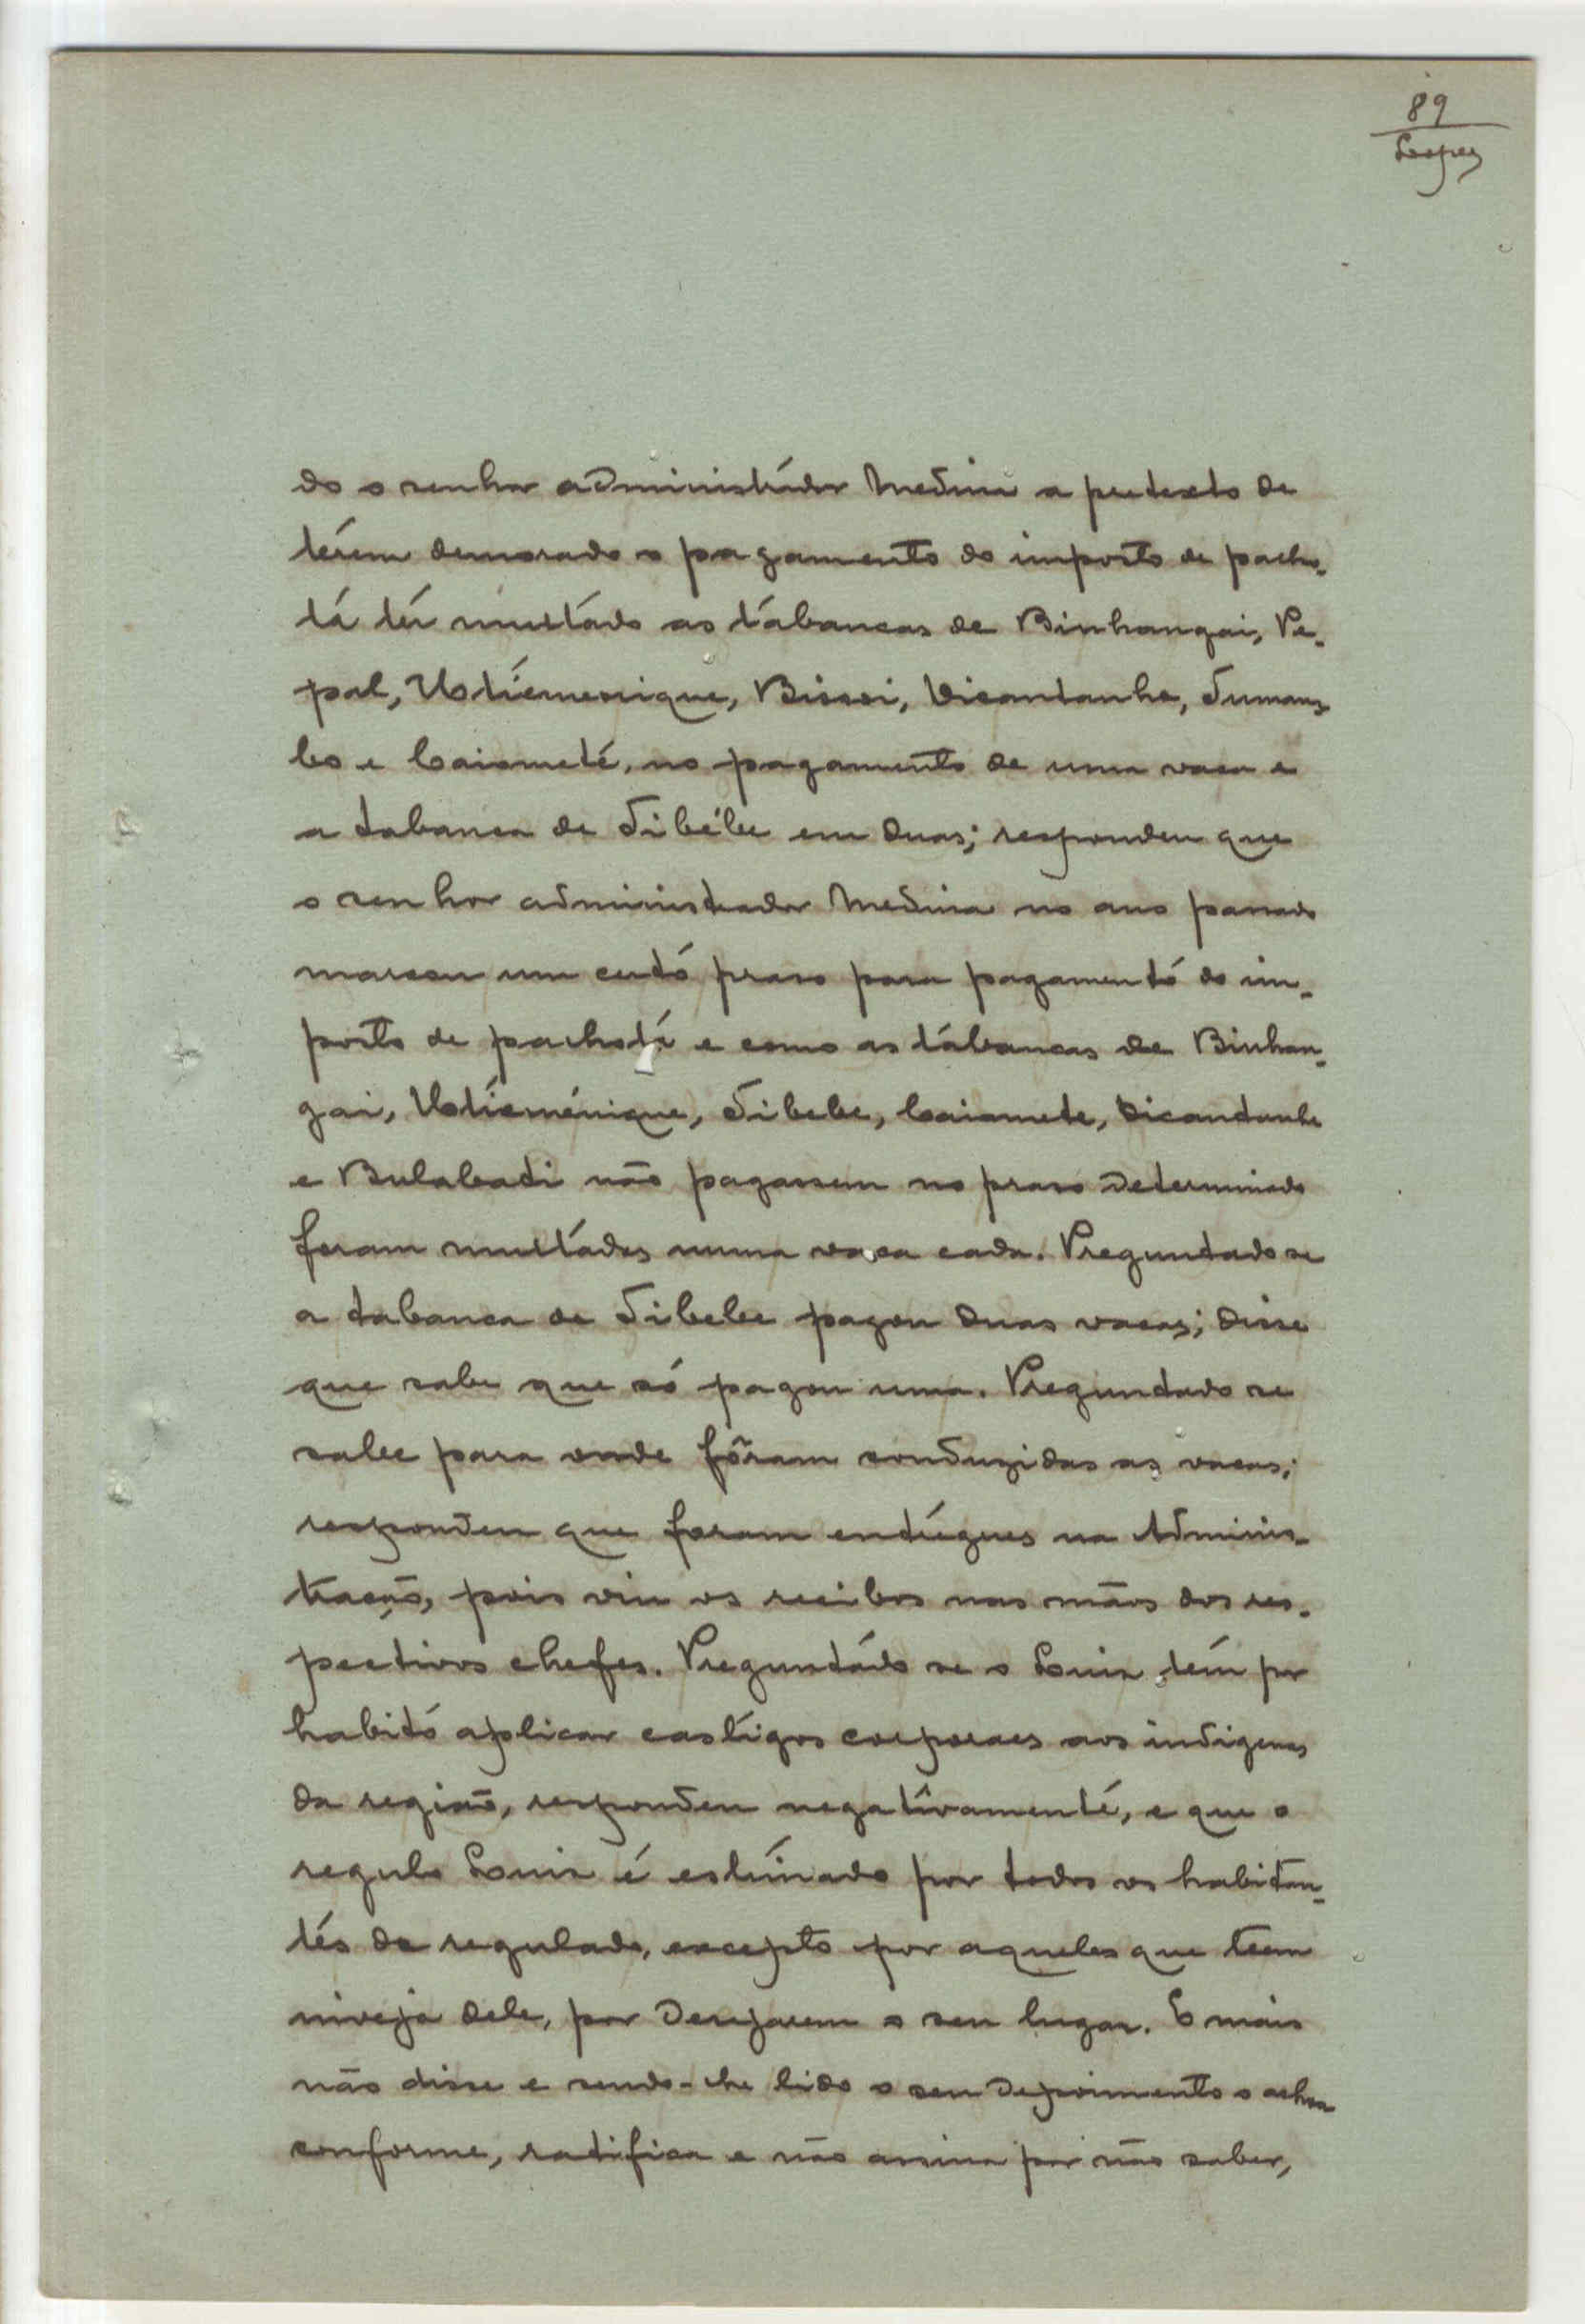 89
Lopes
do o senhor administrador Medina a pretexto de
térem demorado o pagamento do imposto de palho-
tá têr multádo as tábancas de Binhangai, Pe-
pal, Utiémenique, Bissoi, Dicantanhe, Tumam-
bo e Caiometé, no pagamento de uma vaca e
a tabanca de Tibébe em duas; respondeu que
o senhor administrador Medina no ano passado
marcou um certó praso para pagamentó do im-
posto de pachotá e como as tábancas de Binhan-
gai, Utiéménique, Tibebe, Caiomete, Dicandanhe
e Bulabadi não pagassem no praso determinado
foram multádas numa vaca cada. Preguntado se
a tabanca de Tibebe pagou duas vacas; disse
que sabe que só pagou uma. Preguntado se
sabe para onde fôram conduzidas as vacas;
respondeu que foram entrégues na Adminis-
tração, pois viu os recibos nas mãos dos res-
pectivos chefes. Preguntádo se o Luis tém por
habitó aplicar castigos corporaes aos indigenas
da região, respondeu negativamenté, e que o
regulo Luis é estimado por todos os habitan-
tés do regulado, excepto por aqueles que teem
inveja dele, por desejarem o seu lugar. E mais
não disse e sendo-lhe lido o seu depoimento o achou
conforme, ratifica e não assina por não saber,